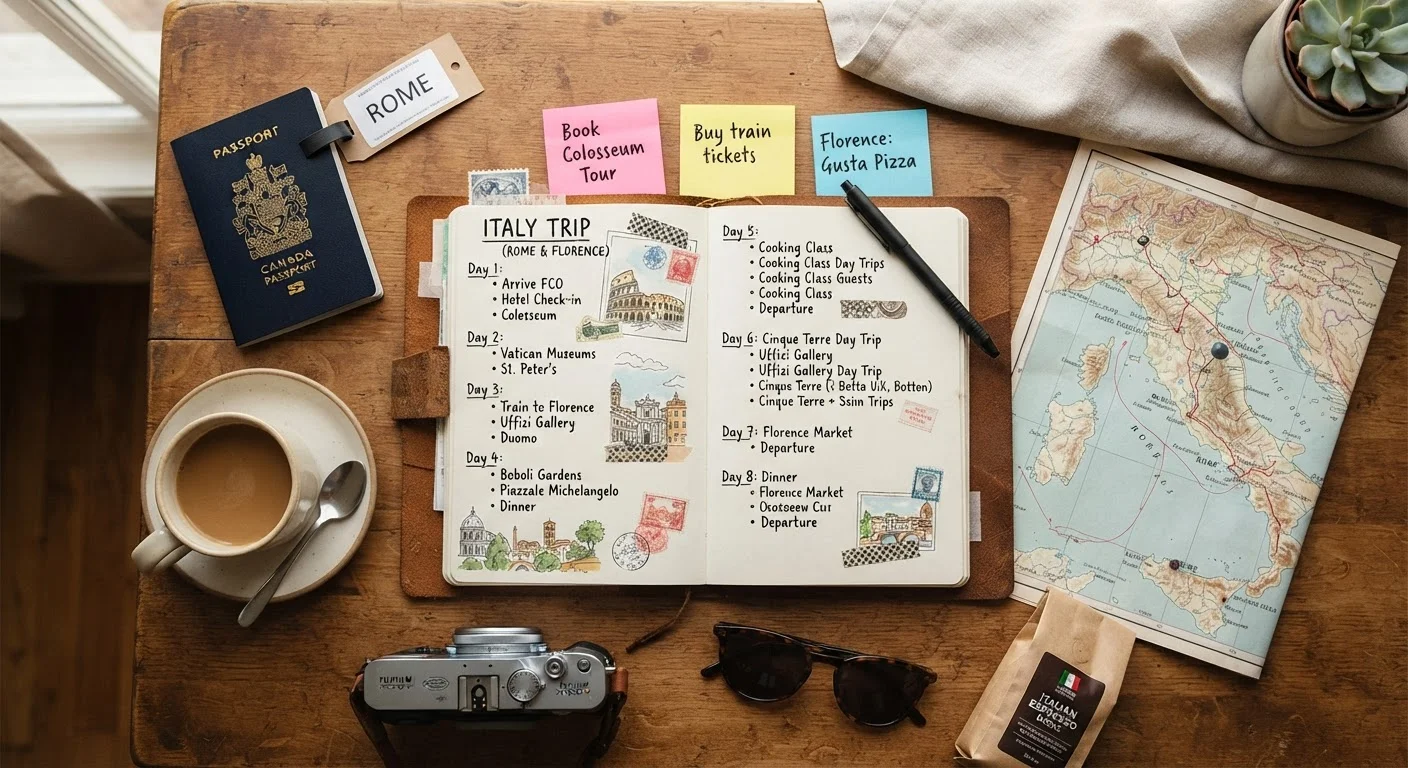 ROME
PASSPORT
CANADA
Book
Colosseum
Tour
Buy train
tickets
Florence:
Gusta Pizza
ITALY TRIP
(ROME & FLORENCE)
Day 1:
• Arrive FCO
• Hotel Check-in
• Coletseum
Day 2:
• Vatican Museums
• St. Peter's
Day 3:
• Train to Florence
• Uffizi Gallery
• Duomo
Day 4:
• Boboli Gardens
• Piazzale Michelangelo
• Dinner
Day 5:
• Cooking Class
• Cooking Class Day Trips
• Cooking Class Guests
• Cooking Class
• Departure
Day 6: Cinque Terre Day Trip
• Uffizi Gallery
• Uffizi Gallery Day Trip
• Cinque Terre
• Cinque Terre + Trips
Day 7: Florence Market
• Departure
Day 8: Dinner
• Florence Market
• Departure
ITALIAN